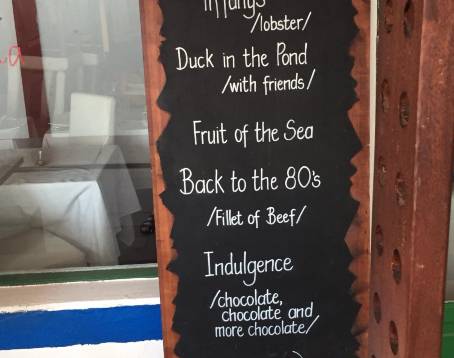 /lobster/
Duck in the Pond
/with friends/
Fruit of the Sea
Back to the 80's
/Fillet of Beef/
Indulgence
/chocolate,
chocolate and
more chocolate/